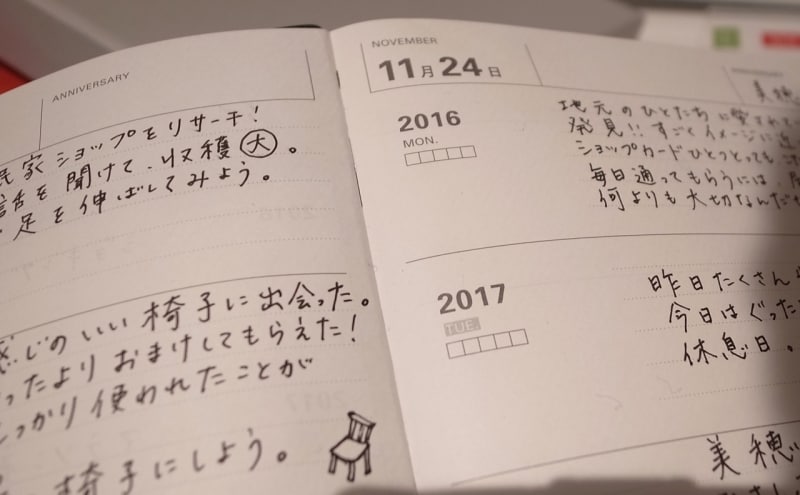 ANNIVERSARY
民家ショップをリサーチ!
話を聞けて、収穫大。
足を伸ばしてみよう。
感じのいい椅子に出会った。
ったよりおまけしてもらえた!
しっかり使われたことが
椅子にしよう。
NOVEMBER
11月24日
美穂
2016
MON.
地元のひとたちに愛されて
発見!!すごくイメージに近
ショップカードひとつとっても
毎日通ってもらうには、
何よりも大切なんだ
2017
TUE.
昨日たくさん
今日はぐった
休息日。
美穂